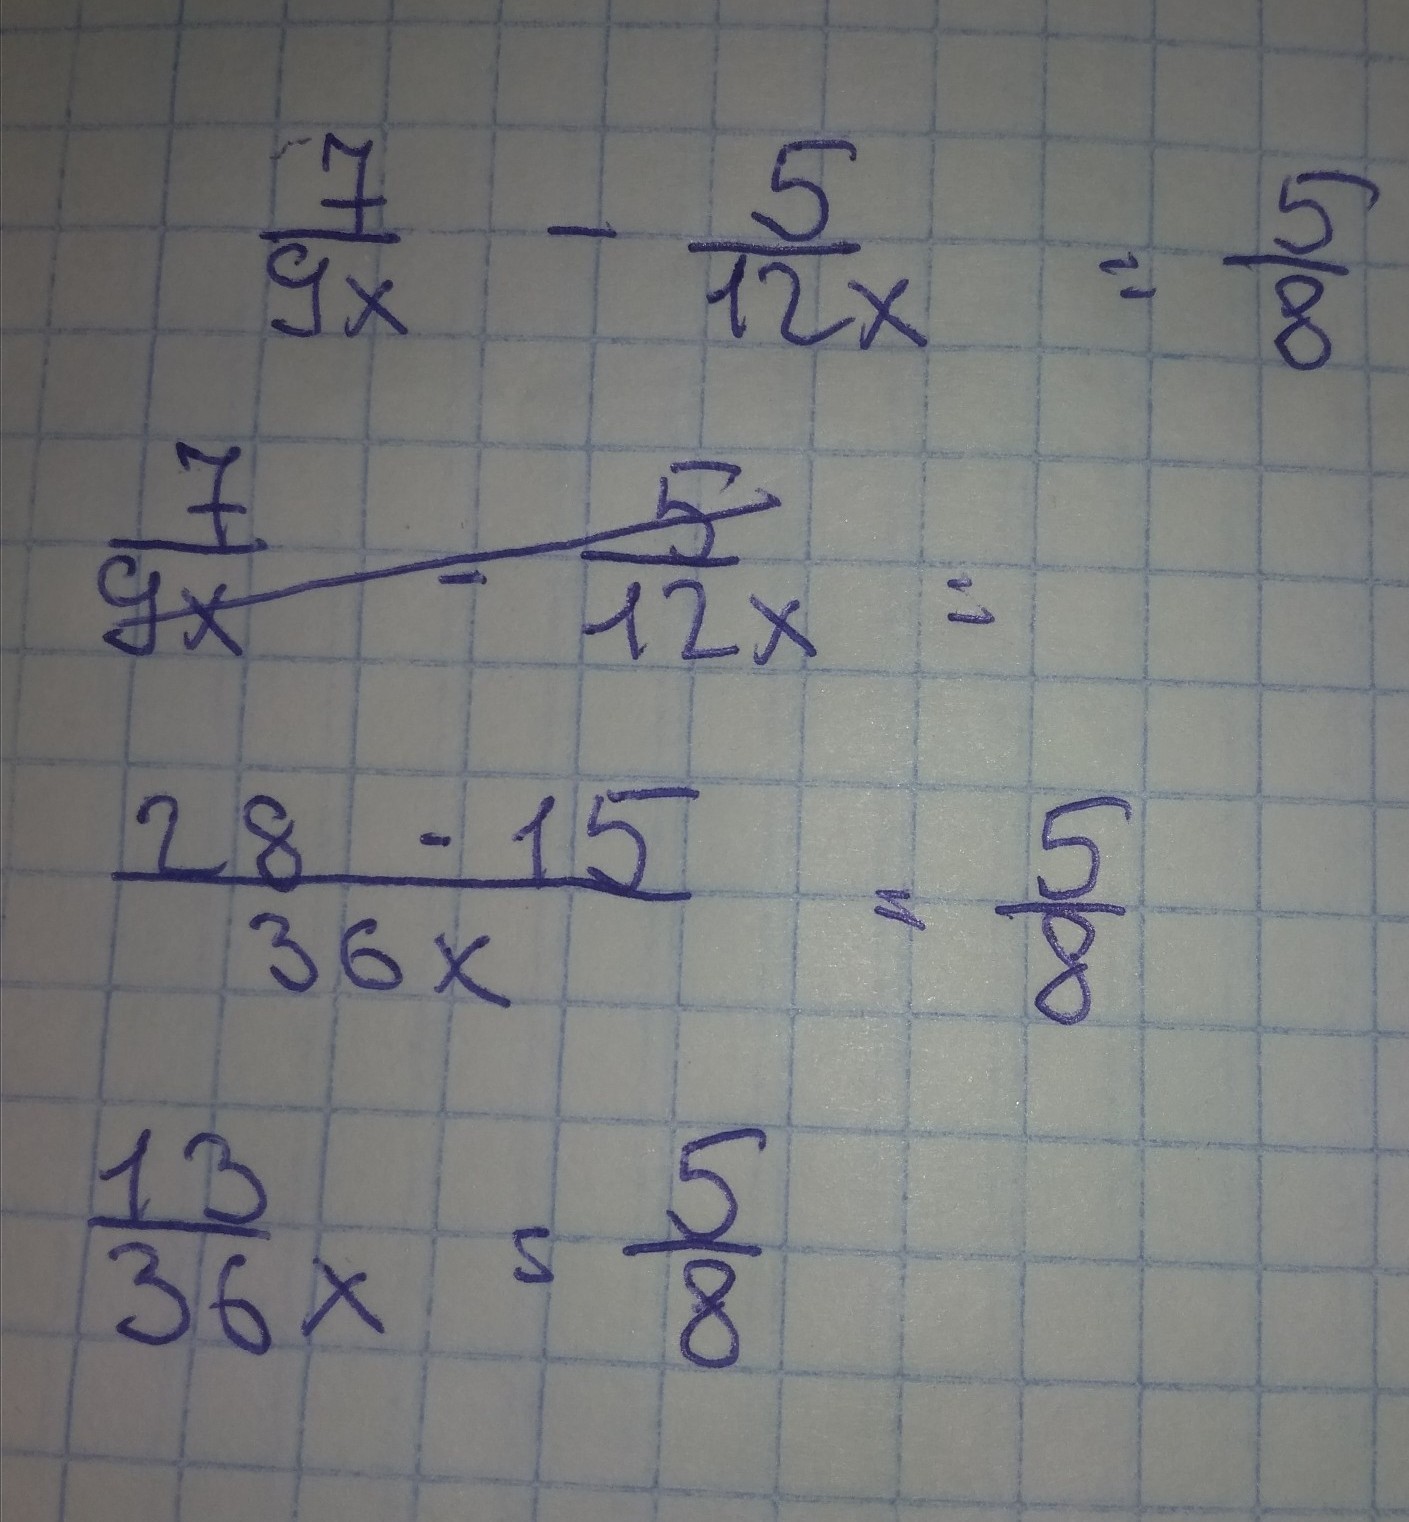 7/9x - 5/12x = 5/8
7/9x - 5/12x =
28 - 15/36x = 5/8
13/36x = 5/8